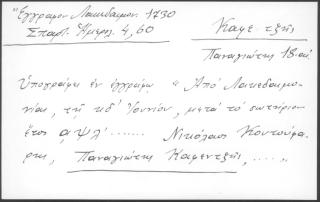 "Έγγραφον Λακεδαιμον. 1730
Σπαρτ. Ημερλ. 4, 60
Καφετζῆς
Παναγιώτης 18 αι.
Ὑπογράφει ἐν ἐγγράφῳ "Ἀπὸ Λακεδαιμο-
νίας, τῇ κδ' Ἰουνίου, μετὰ τὸ σωτήριον
ἔτος αψλ' ...... Νικόλαος Κουτούφα-
ρης, Παναγιώτης Καφεντζῆς, ....."